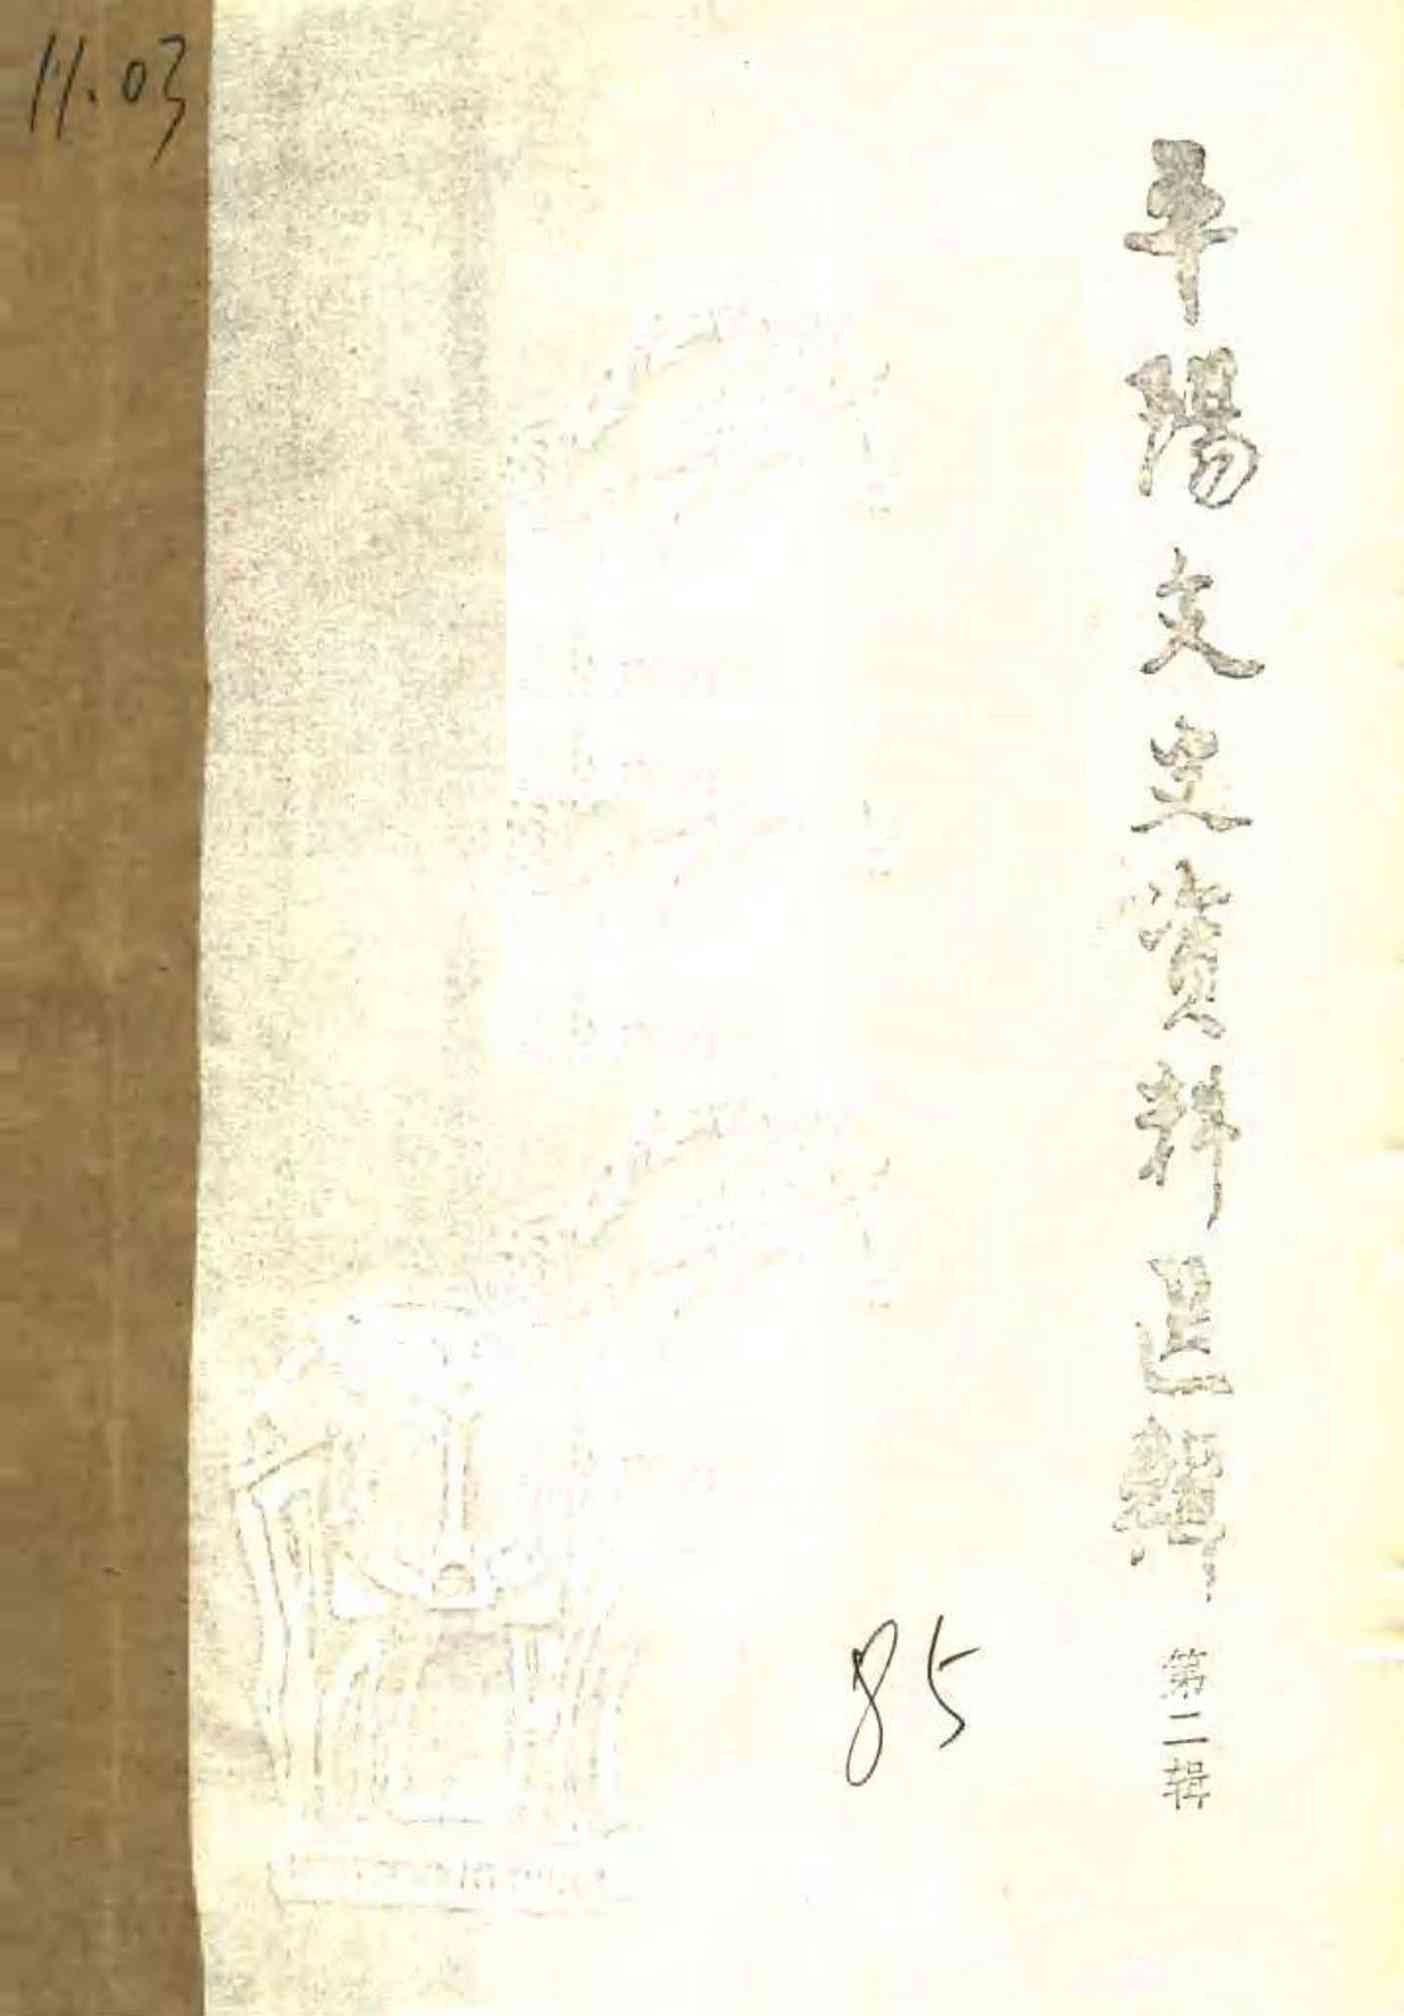 11.03
平陽文史資料選輯
第二辑
85